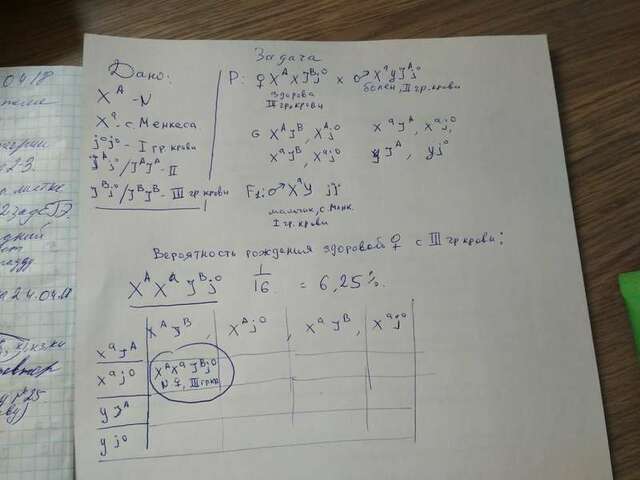 Задача
Дано:
X^A - N
X^a - с. Менкеса
j^o j^o - I гр. крови
J^A j^o / J^A J^A - II
J^B j^o / J^B J^B - III гр. крови
P: ♀ X^A X^a J^B j^o x ♂ X^a y J^A j^o
здорова болен, II гр. крови
III гр. крови
G X^A J^B, X^A j^o X^a J^A, X^a j^o,
X^a J^B, X^a j^o y J^A, y j^o
F1: ♂ X^a y jj
мальчик, с. Менк.
I гр. крови
Вероятность рождения здоровой ♀ с III гр. крови;
X^A X^a J^B j^o 1/16 = 6,25%.
X^A J^B, X^A j^o, X^a J^B, X^a j^o
X^a J^A
X^a j^o X^A X^a J^B j^o
N ♀, III гр кр
y J^A
y j^o
04.18
23.
24.04
№25